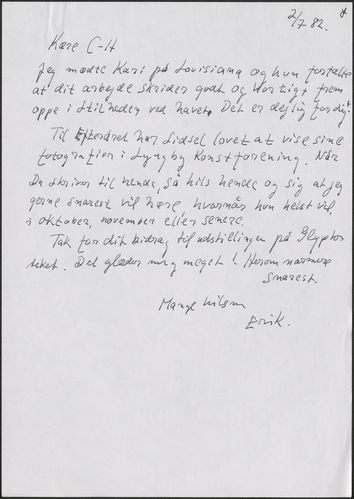 2/7 82.
Kære C-H
Jeg mødte Kari på Louisiana og hun fortalte
at dit arbejde skrider godt og hurtigt frem
oppe i stilheden ved havet. Det er dejlig for dig!
Til Efteråret har Sidsel lovet at vise sine
fotografier i Lyngby Kunstforening. Når
Du skriver til hende, så hils hende og sig at jeg
gerne snarest vil høre, hvornår hun helst vil,
i oktober, november eller senere.
Tak for dit bidrag til udstillingen på Glypto-
teket. Det glæder mig meget! Herom nærmere
snarest.
Mange hilsner
Erik.